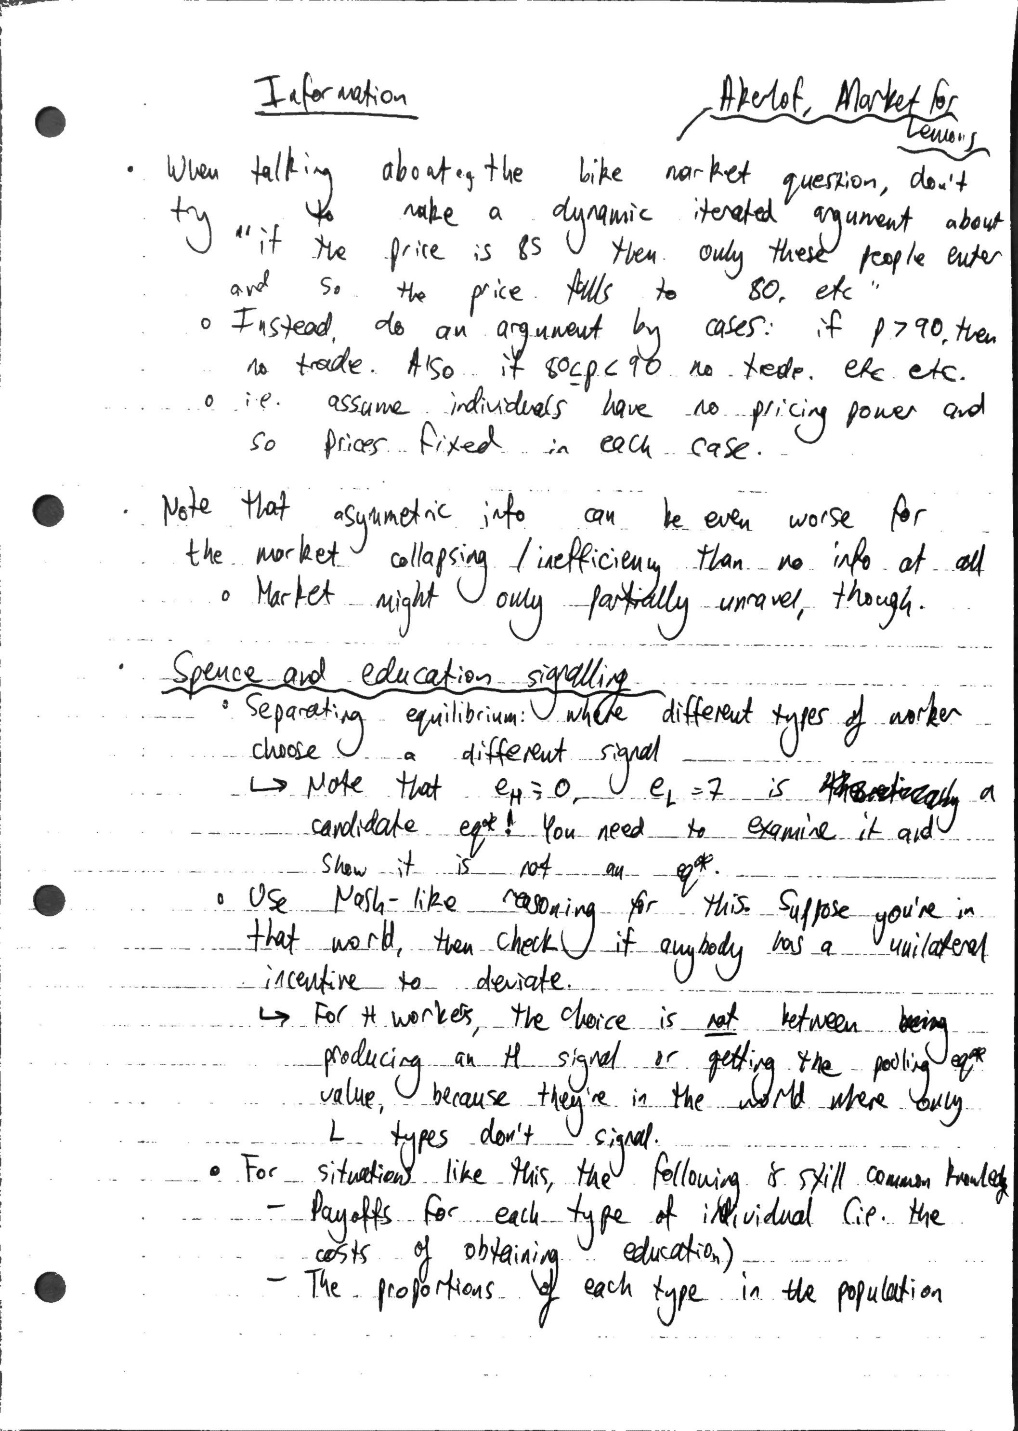 Information
Akerlof, Market for
Lemons
• When talking about eg the bike market question, don't
try to make a dynamic iterated argument about
"if the price is 85 then only these people enter
and so the price falls to 80, etc"
o Instead, do an argument by cases: if p > 90, then
no trade. Also if 80≤p<90 no trade. etc etc.
o i.e. assume individuals have no pricing power and
so prices fixed in each case.
• Note that asymmetric info can be even worse for
the market collapsing / inefficiency than no info at all
o Market might only partially unravel, though.
• Spence and education signalling
• Separating equilibrium: where different types of worker
choose a different signal
↳ Note that e_H = 0, e_L = 7 is a
candidate eq*! You need to examine it and
show it is not an eq*.
o Use Nash-like reasoning for this. Suppose you're in
that world, then check if anybody has a unilateral
incentive to deviate.
↳ For H workers, the choice is not between
producing an H signal or getting the pooling eq*
value, because they're in the world where only
L types don't signal.
• For situations like this, the following is still common knowledg
- Payoffs for each type of individual (i.e. the
costs of obtaining education)
- The proportions of each type in the population